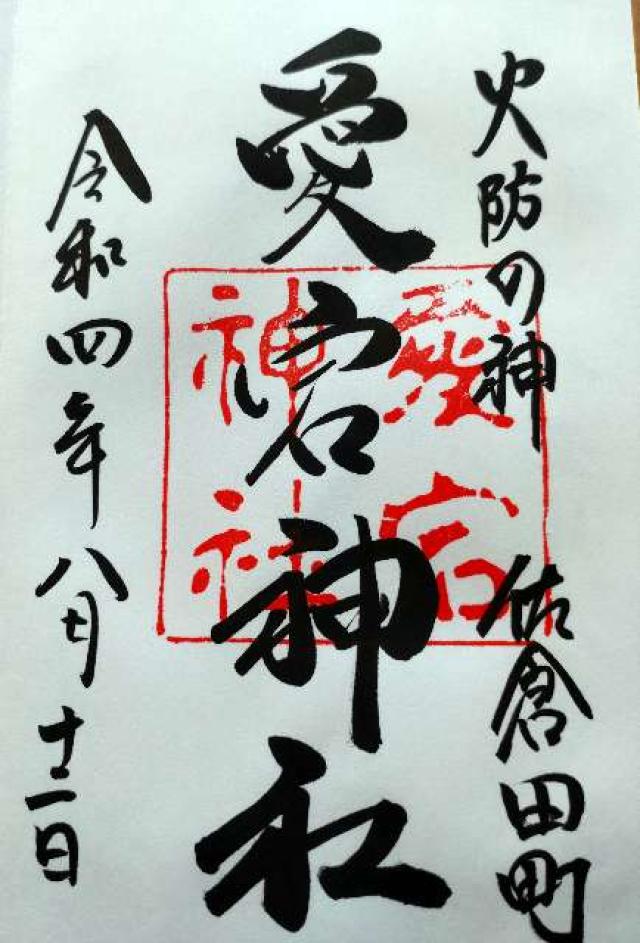 火防の神
佐倉田町
愛宕神社
愛宕
神社
令和四年八月十二日